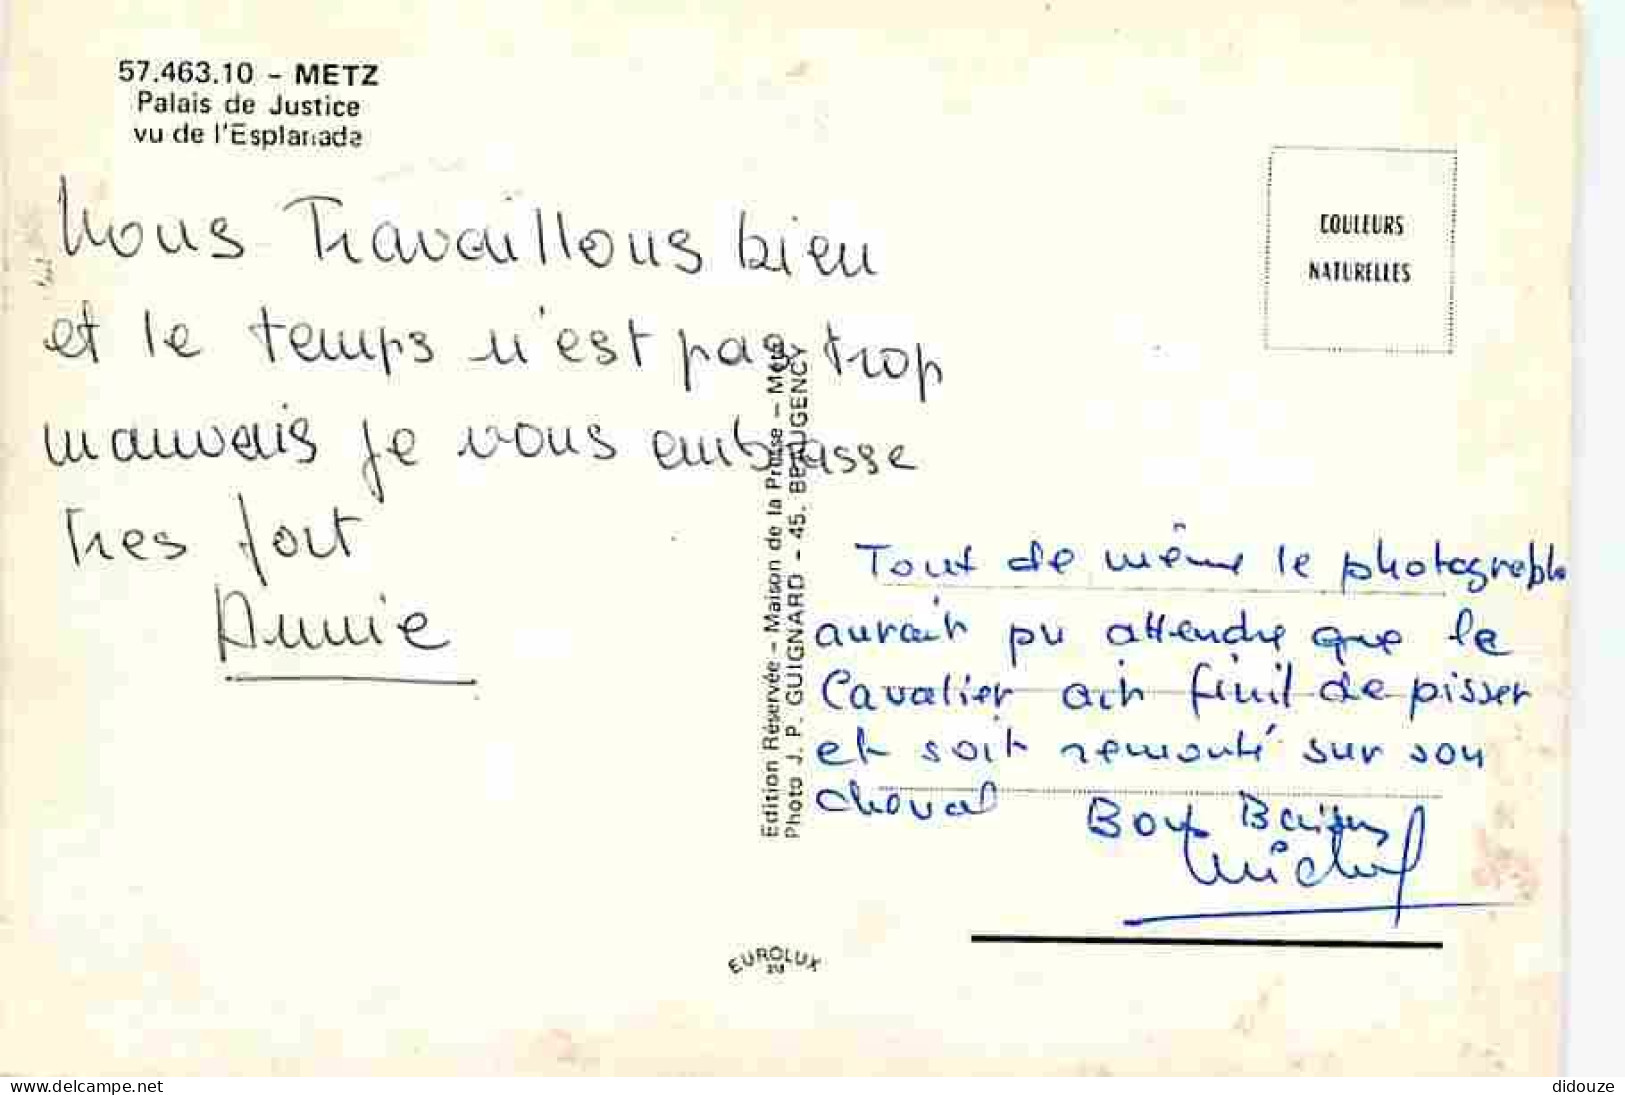 57.463.10 - METZ
Palais de Justice
vu de l'Esplanade
Nous Travaillons bien
et le temps n'est pas trop
mauvais je vous embrasse
tres fort
Annie
Edition Réservée - Maison de la Presse - Metz
Photo J. P. GUIGNARD - 45. BEAUGENCY
COULEURS
NATURELLES
Tout de même le photographe
aurait pu attendre que le
Cavalier ait finit de pisser
et soit remonté sur son
cheval
Bons Baisers
Michel
EUROLUX
www.delcampe.net
didouze